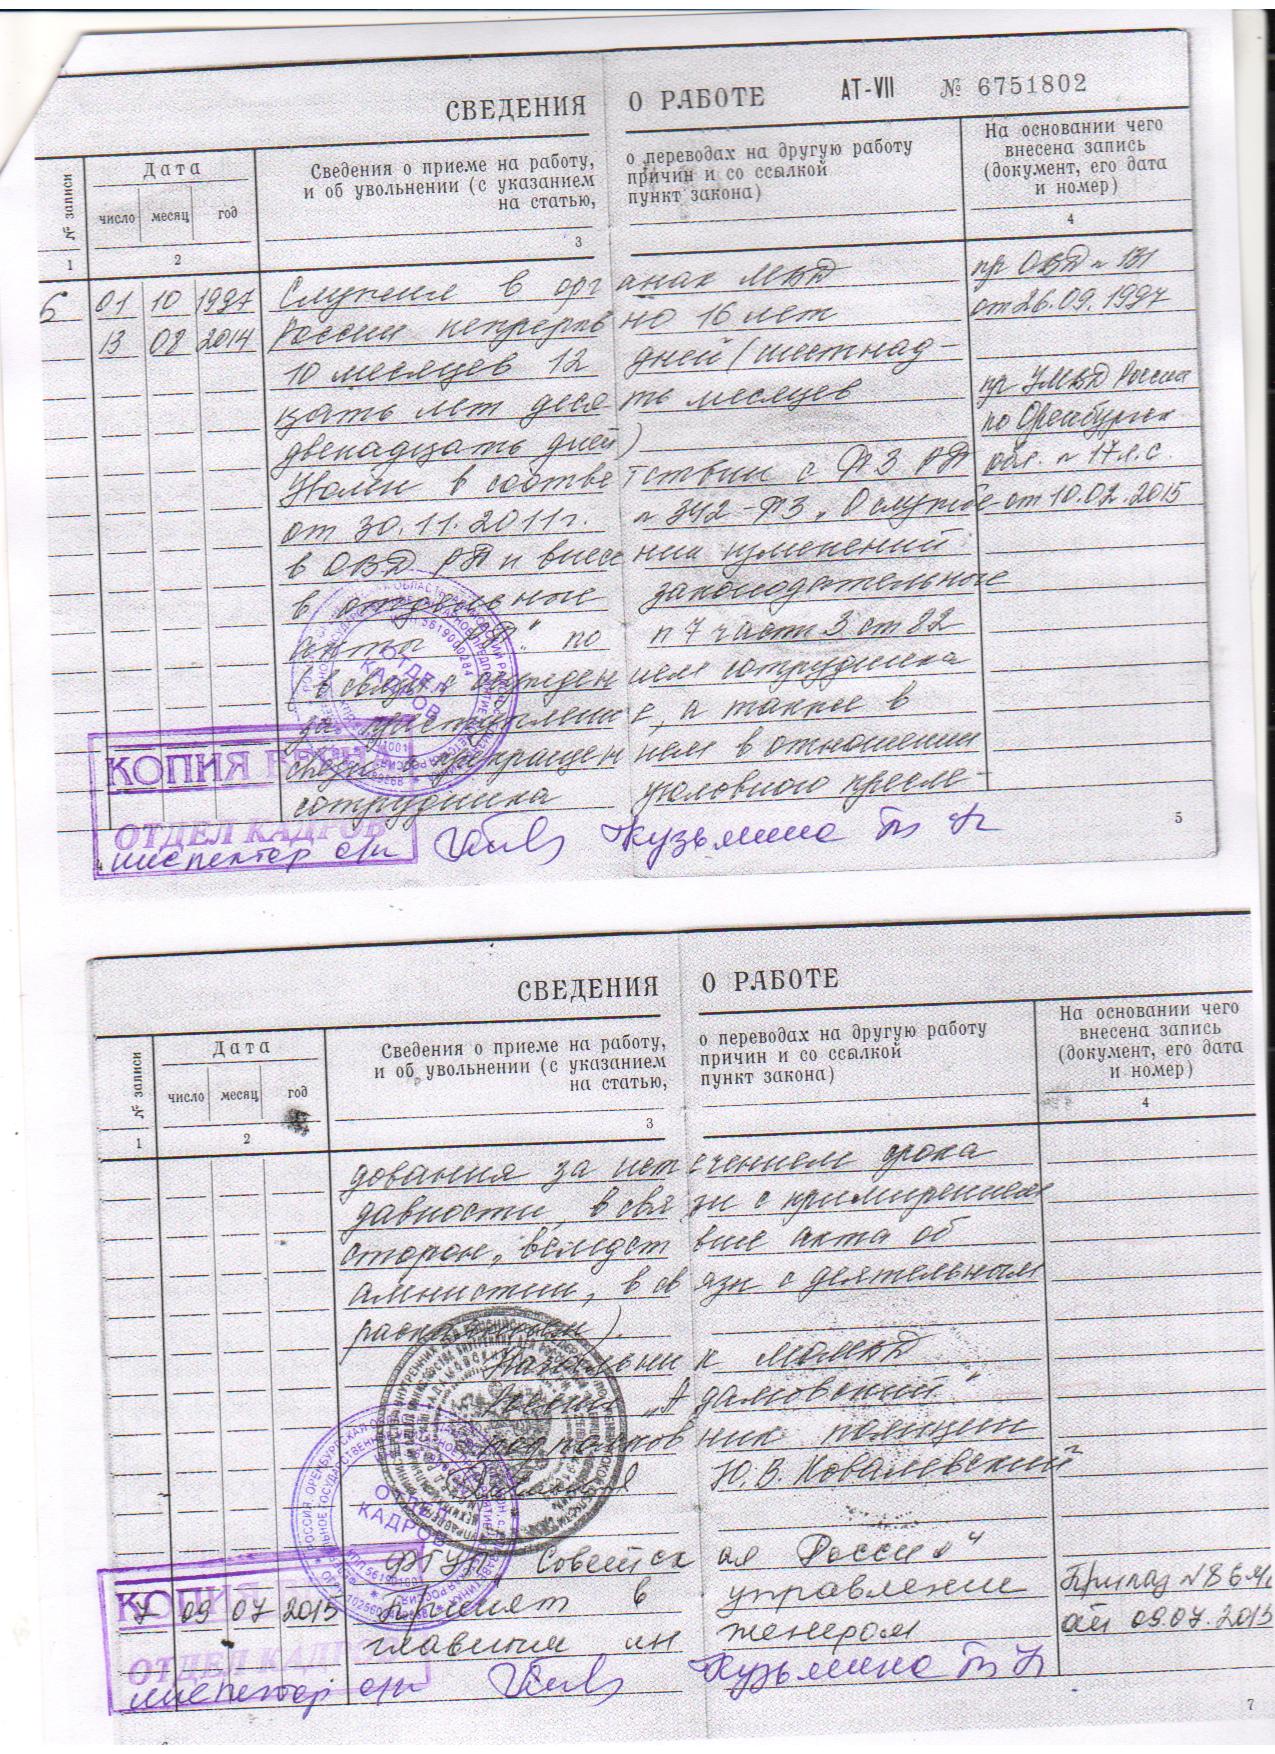 СВЕДЕНИЯ О РАБОТЕ АТ-VII № 6751802
№ записи
Дата
число месяц год
Сведения о приеме на работу, о переводах на другую работу
и об увольнении (с указанием причин и со ссылкой
на статью, пункт закона)
На основании чего
внесена запись
(документ, его дата
и номер)
1 2 3 4
6 01 10 1997 Служил в органах МВД пр ОВД № 131
от 26.09.1997
13 08 2014 России непрерывно 16 лет
10 месяцев 12 дней (шестнад-
цать лет десять месяцев пр УМВД России
двенадцать дней) по Оренбургск
Уволен в соответствии с ФЗ РФ обл. № 17 л.с.
от 30.11.2011г. № 342-ФЗ „О службе от 10.02.2015
в ОВД РФ и внесении изменений
в отдельные законодательные
акты РФ" по п 7 части 3 ст 82
(в связи с осуждением сотрудника
за преступление, а также в
связи с прекращением в отношении
сотрудника уголовного пресле-
КОПИЯ ВЕРНА
ОТДЕЛ КАДРОВ
ОТДЕЛ
КАДРОВ
инспектор о/к Кузьмина
5
СВЕДЕНИЯ О РАБОТЕ
№ записи
Дата
число месяц год
Сведения о приеме на работу, о переводах на другую работу
и об увольнении (с указанием причин и со ссылкой
на статью, пункт закона)
На основании чего
внесена запись
(документ, его дата
и номер)
1 2 3 4
дования за истечением срока
давности, в связи с примирением
сторон, вследствие акта об
амнистии, в связи с деятельным
раскаянием).
Начальник МОМВД
России „Адамовский"
подполковник полиции
Ю.В. Ковалевский
ФГУП "Советская Россия"
7 09 07 2015 Принят в управление Приказ № 86
главным инженером от 09.07.2015
КОПИЯ
ОТДЕЛ КАДРОВ
ОТДЕЛ
КАДРОВ
инспектор о/к Кузьмина
7